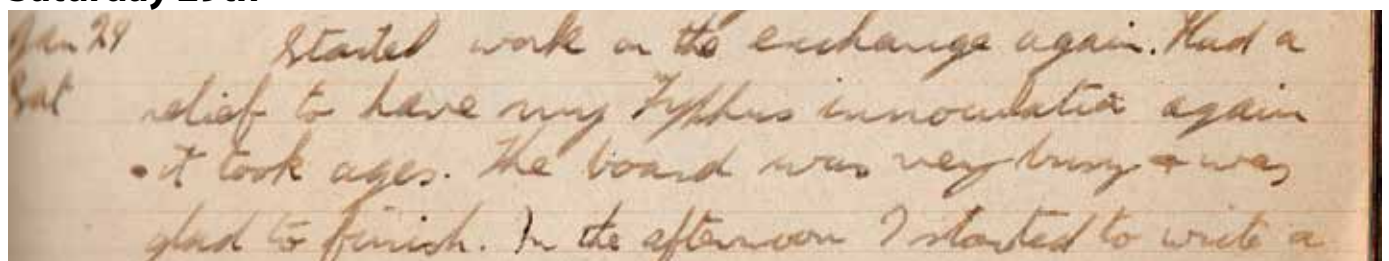 Saturday 29th
Jan 29 Started work on the exchange again. Had a
Sat relief to have my Typhus innoculation again
+ it took ages. The board was very busy + was
glad to finish. In the afternoon I started to write a